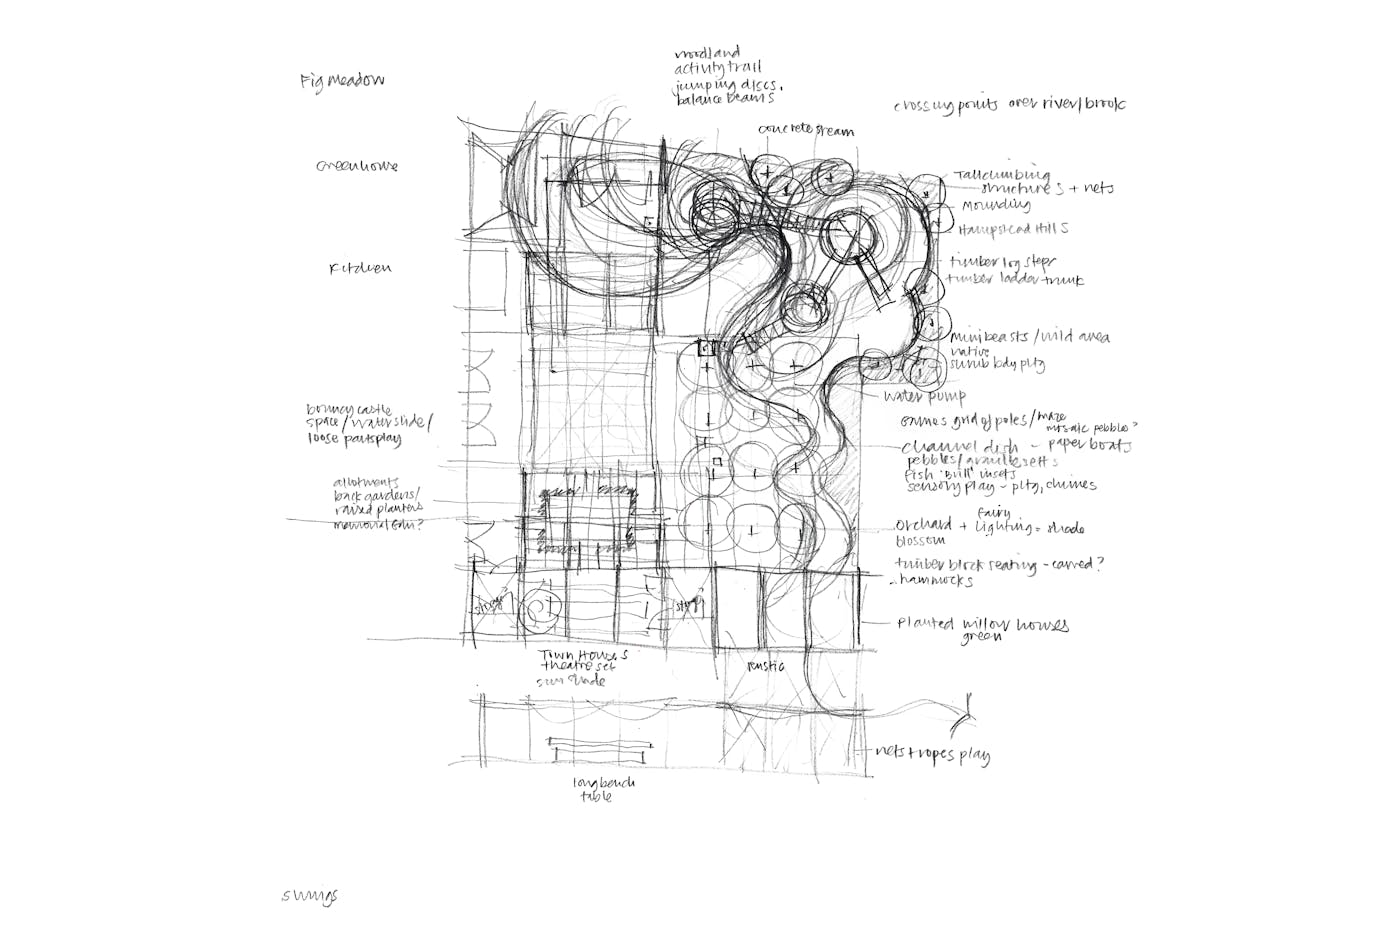 Fig Meadow
woodland
activity trail
jumping discs,
balance beams
crossing points over river/brook
concrete stream
Greenhouse
Tall climbing
structures + nets
Mounding
Hampstead Hills
Kitchen
timber log steps
timber ladder trunk
minibeasts / wild area
native
shrub bdy pltg
water pump
bouncy castle
space / waterslide /
loose parts play
Games grid of poles / maze
mosaic pebbles?
channel dish - paper boats
pebbles / granite setts
fish 'Brill' insets
sensory play - pltg, chimes
allotments
back gardens /
raised planters
memorial Gdn?
fairy
Orchard + Lighting = shade
blossom
timber block seating - carved?
hammocks
storage
storage
Planted willow houses
green
Town Houses
theatre set
sun shade
rustic
nets + ropes play
long bench
table
swings